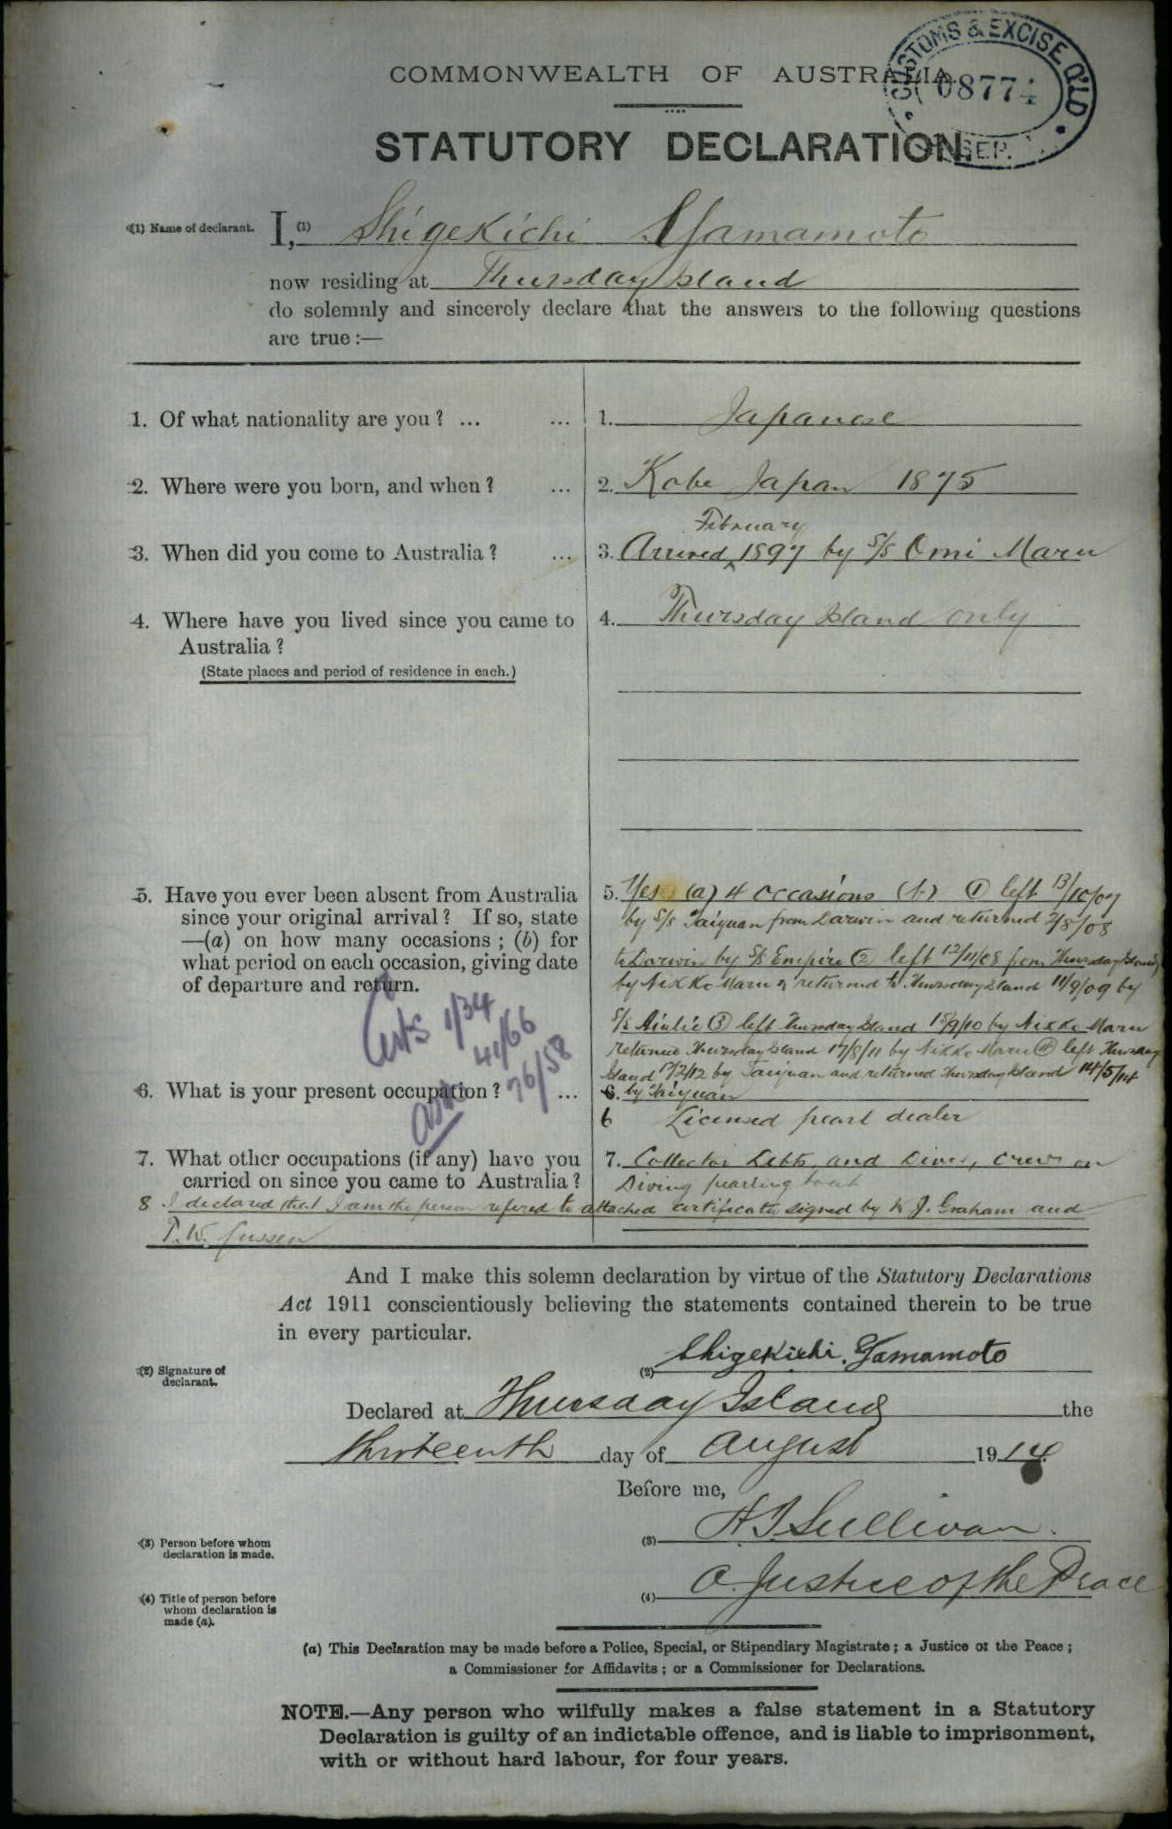 CUSTOMS & EXCISE Q'LD
08774
SEP.
COMMONWEALTH OF AUSTRALIA.
STATUTORY DECLARATION.
(1) Name of declarant. I, (1) Shigekichi Yamamoto
now residing at Thursday Island
do solemnly and sincerely declare that the answers to the following questions
are true:—
1. Of what nationality are you? ... ... 1. Japanese
2. Where were you born, and when? ... 2. Kobe Japan 1875
February
3. When did you come to Australia? ... 3. Arrived 1897 by S/S Omi Maru
4. Where have you lived since you came to 4. Thursday Island only
Australia?
(State places and period of residence in each.)
5. Have you ever been absent from Australia 5. Yes (a) 4 occasions (b) (1) left 13/10/07
since your original arrival? If so, state by S/S Taiyuan from Darwin and returned 2/8/08
—(a) on how many occasions; (b) for to Darwin by S/S Empire (2) left 12/11/08 from Thursday Island
what period on each occasion, giving date
of departure and return. by Nikko Maru & returned to Thursday Island 11/9/09 by
S/S (3) left Thursday Island 15/9/10 by Nikko Maru
returned Thursday Island 17/8/11 by Nikko Maru (4) left Thursday
Island 17/2/12 by Taiyuan and returned Thursday Island 14/5/14
Certs 1/34
41/66
76/58
6. What is your present occupation? ... 6. by Taiyuan
6 Licensed pearl dealer
7. What other occupations (if any) have you 7. Collector Debts and Diver, crew on
carried on since you came to Australia? Diving pearling boat
8. I declared that I am the person refered to attached certificate signed by K J. Graham and
P. W.
And I make this solemn declaration by virtue of the Statutory Declarations
Act 1911 conscientiously believing the statements contained therein to be true
in every particular.
(2) Signature of
declarant.
(2) Shigekichi. Yamamoto
Declared at Thursday Island the
thirteenth day of August 1914
Before me,
(3) Person before whom
declaration is made.
(3) H J Sullivan.
(4) Title of person before
whom declaration is
made (a).
(4) A. Justice of the Peace
(a) This Declaration may be made before a Police, Special, or Stipendiary Magistrate; a Justice of the Peace;
a Commissioner for Affidavits; or a Commissioner for Declarations.
NOTE.—Any person who wilfully makes a false statement in a Statutory
Declaration is guilty of an indictable offence, and is liable to imprisonment,
with or without hard labour, for four years.